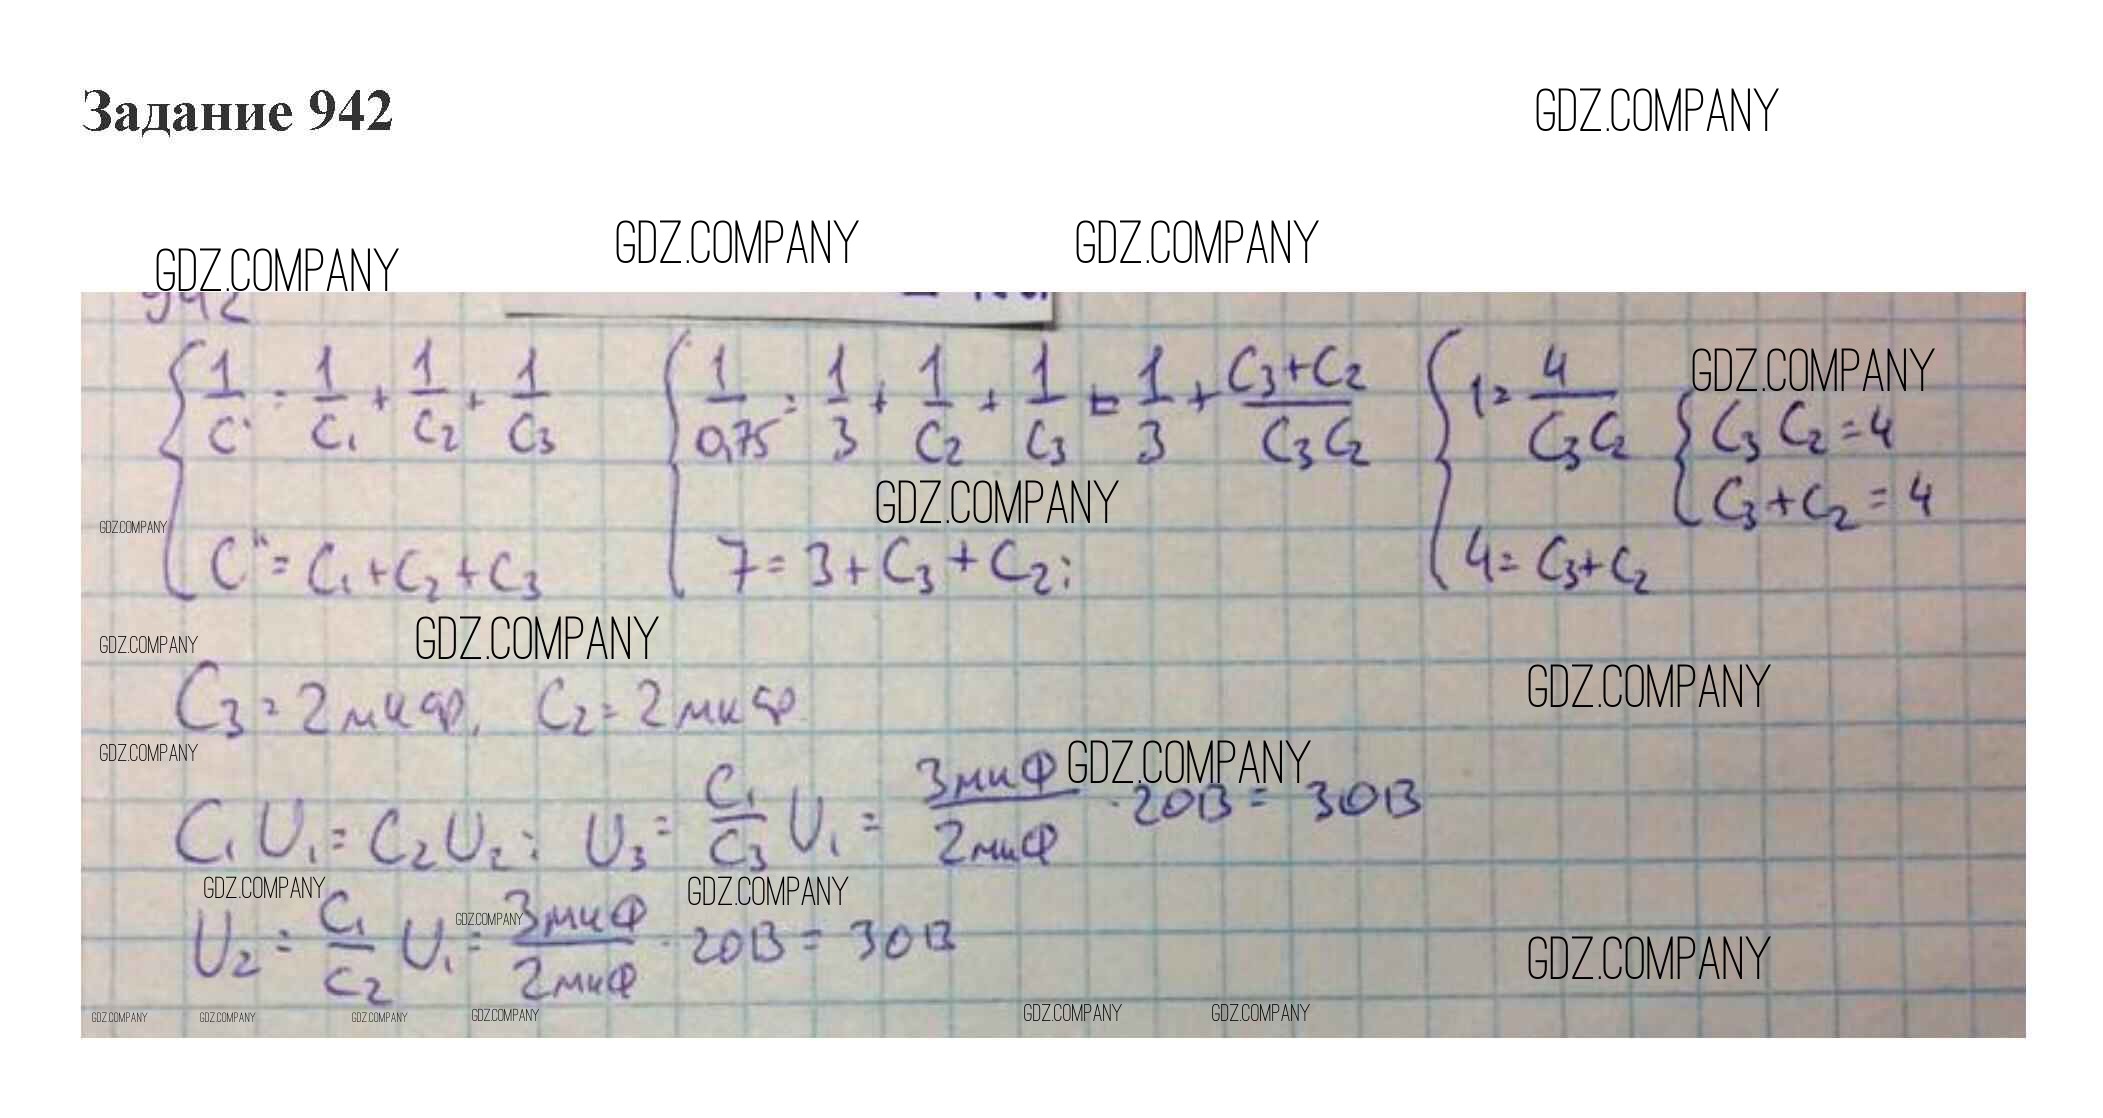 Задание 942
GDZ.COMPANY
GDZ.COMPANY GDZ.COMPANY
GDZ.COMPANY
942
{ 1/C' = 1/C₁ + 1/C₂ + 1/C₃ { 1/0,75 = 1/3 + 1/C₂ + 1/C₃ = 1/3 + (C₃+C₂)/(C₃C₂) { 1 = 4/(C₃C₂) { C₃ C₂ = 4
GDZ.COMPANY
C₃ + C₂ = 4
GDZ.COMPANY
GDZ.COMPANY
C" = C₁ + C₂ + C₃ 7 = 3 + C₃ + C₂; 4 = C₃ + C₂
GDZ.COMPANY GDZ.COMPANY
GDZ.COMPANY
C₃ = 2 мкФ, C₂ = 2 мкФ
GDZ.COMPANY GDZ.COMPANY
C₁U₁ = C₂U₂; U₃ = C₁/C₃ U₁ = 3мкФ/2мкФ · 20В = 30В
GDZ.COMPANY GDZ.COMPANY GDZ.COMPANY
U₂ = C₁/C₂ U₁ = 3мкФ/2мкФ · 20В = 30В
GDZ.COMPANY
GDZ.COMPANY GDZ.COMPANY GDZ.COMPANY GDZ.COMPANY GDZ.COMPANY GDZ.COMPANY